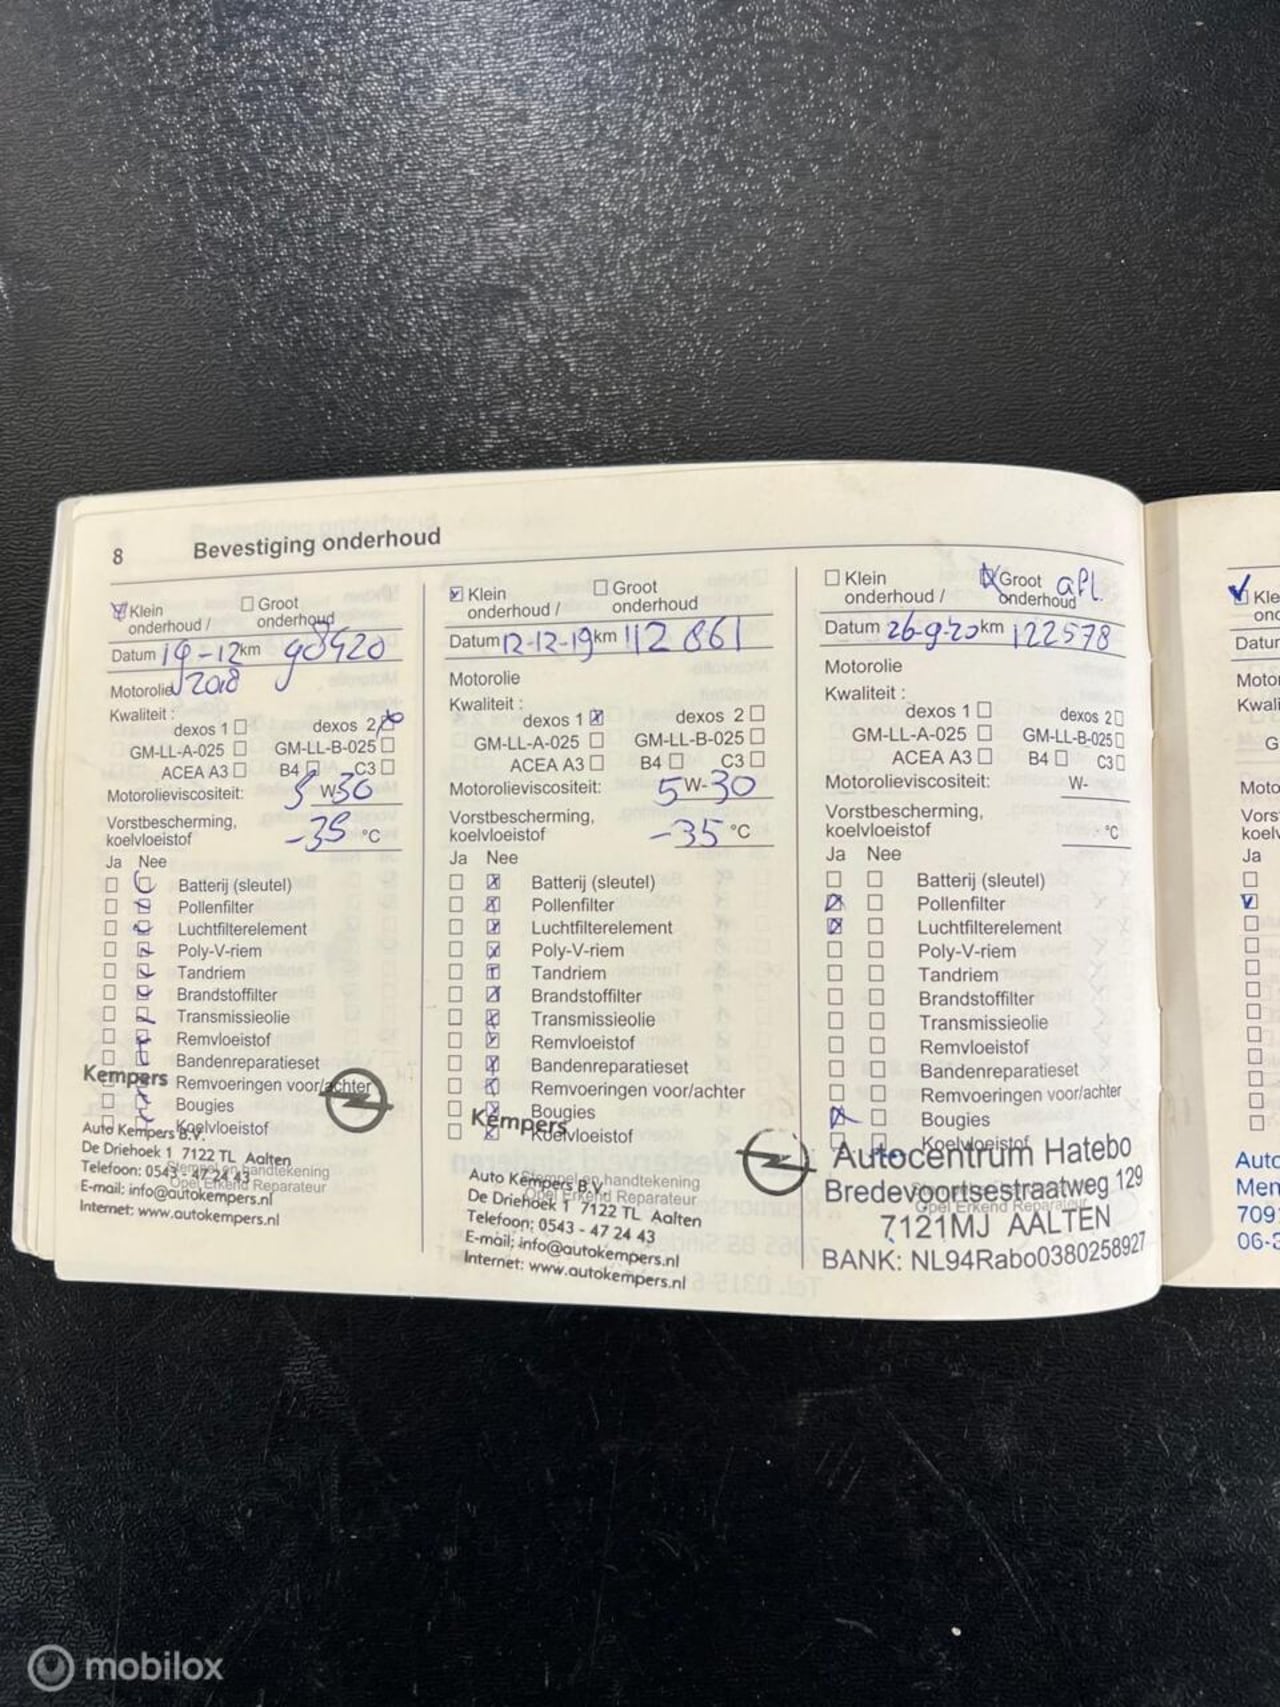 8 Bevestiging onderhoud
Klein onderhoud / Groot onderhoud
Datum 19-12 km 98420
2018
Motorolie
Kwaliteit :
dexos 1 dexos 2
GM-LL-A-025 GM-LL-B-025
ACEA A3 B4 C3
Motorolieviscositeit: 5 W-30
Vorstbescherming,
koelvloeistof -35 °C
Ja Nee
Batterij (sleutel)
Pollenfilter
Luchtfilterelement
Poly-V-riem
Tandriem
Brandstoffilter
Transmissieolie
Remvloeistof
Bandenreparatieset
Remvoeringen voor/achter
Bougies
Koelvloeistof
Stempel en handtekening
Opel Erkend Reparateur
Kempers
Auto Kempers B.V.
De Driehoek 1 7122 TL Aalten
Telefoon: 0543 - 47 24 43
E-mail: info@autokempers.nl
Internet: www.autokempers.nl
Klein onderhoud / Groot onderhoud
Datum 12-12-19 km 112 861
Motorolie
Kwaliteit :
dexos 1 dexos 2
GM-LL-A-025 GM-LL-B-025
ACEA A3 B4 C3
Motorolieviscositeit: 5 W-30
Vorstbescherming,
koelvloeistof -35 °C
Ja Nee
Batterij (sleutel)
Pollenfilter
Luchtfilterelement
Poly-V-riem
Tandriem
Brandstoffilter
Transmissieolie
Remvloeistof
Bandenreparatieset
Remvoeringen voor/achter
Bougies
Koelvloeistof
Stempel en handtekening
Opel Erkend Reparateur
Kempers
Auto Kempers B.V.
De Driehoek 1 7122 TL Aalten
Telefoon: 0543 - 47 24 43
E-mail: info@autokempers.nl
Internet: www.autokempers.nl
Klein onderhoud / Groot onderhoud afl.
Datum 26-9-20 km 122578
Motorolie
Kwaliteit :
dexos 1 dexos 2
GM-LL-A-025 GM-LL-B-025
ACEA A3 B4 C3
Motorolieviscositeit: W-
Vorstbescherming,
koelvloeistof °C
Ja Nee
Batterij (sleutel)
Pollenfilter
Luchtfilterelement
Poly-V-riem
Tandriem
Brandstoffilter
Transmissieolie
Remvloeistof
Bandenreparatieset
Remvoeringen voor/achter
Bougies
Koelvloeistof
Opel Erkend Reparateur
Autocentrum Hatebo
Bredevoortsestraatweg 129
7121MJ AALTEN
BANK: NL94Rabo0380258927
Kle
ond
Datur
Moto
Kwali
G
Moto
Vors
koelv
Ja
Auto
Men
709
06-3
mobilox